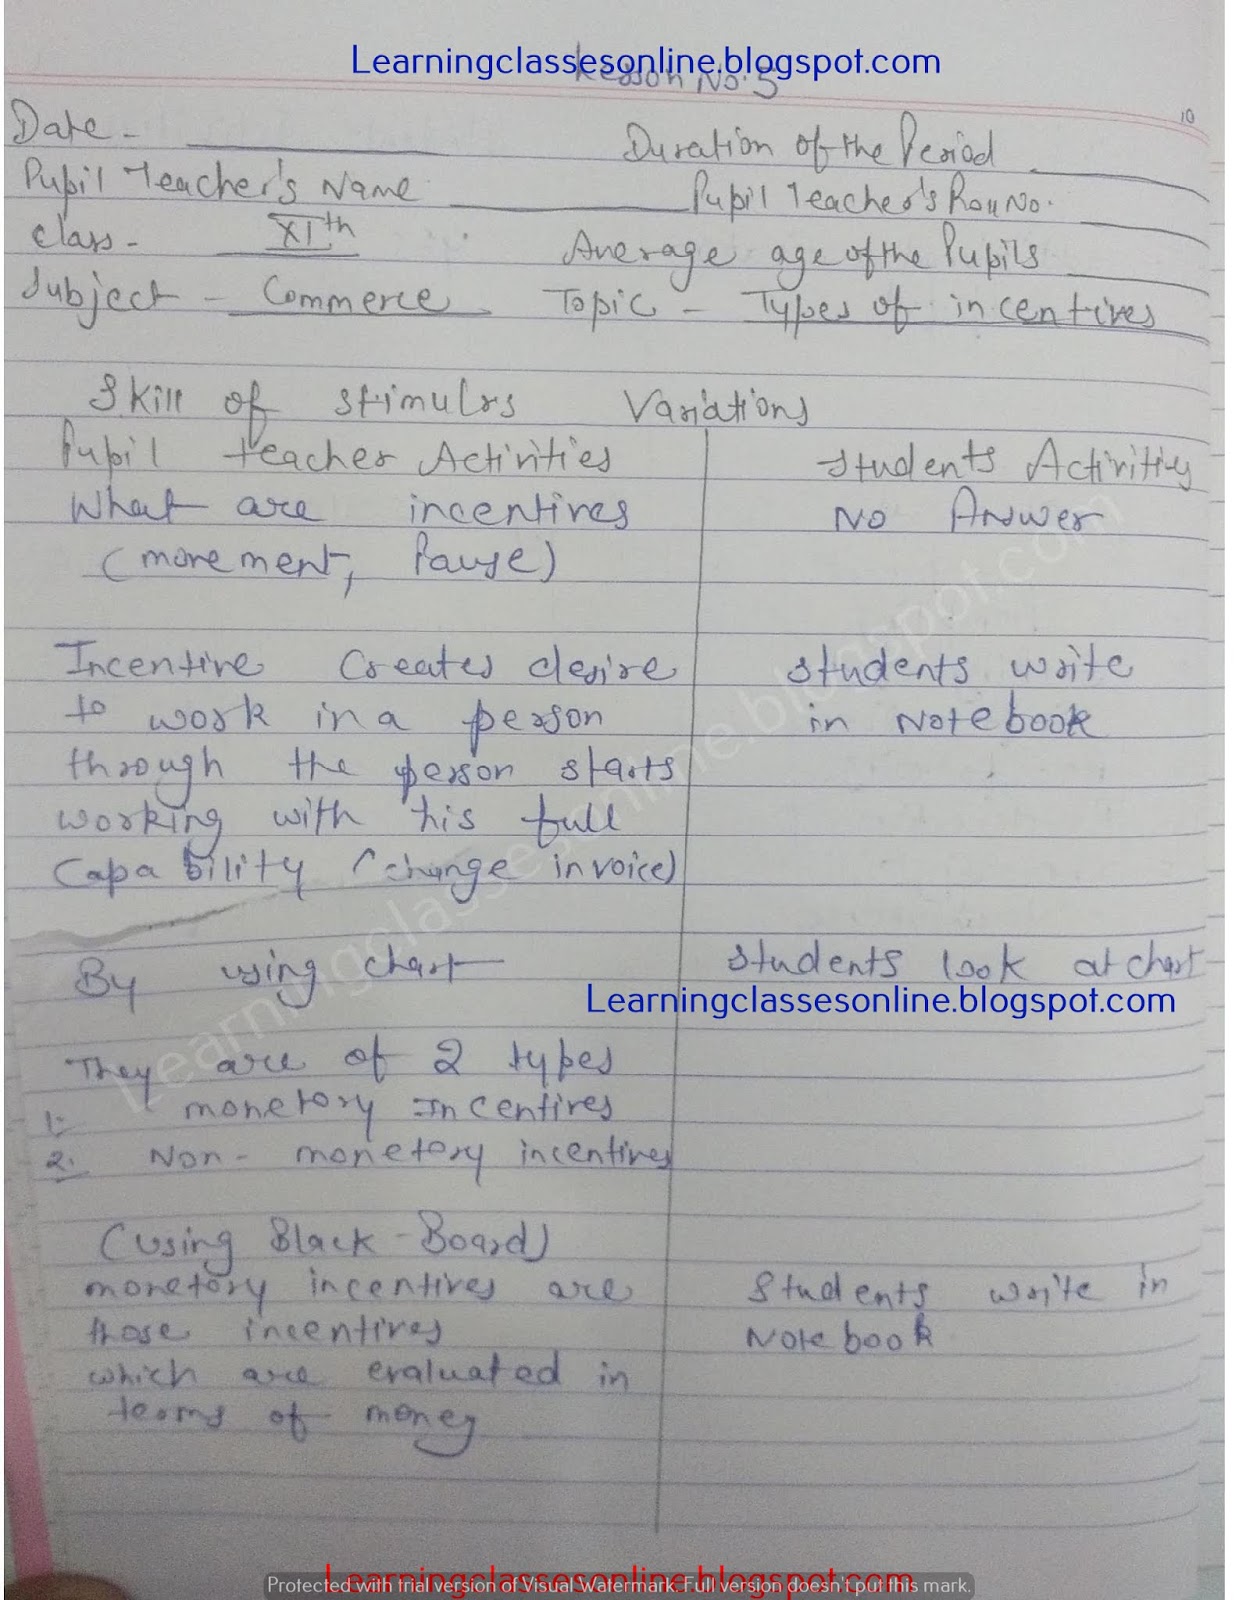 Learningclassesonline.blogspot.com
Lesson No. 5
10
Date - Duration of the Period
Pupil Teacher's Name Pupil Teacher's Roll No.
Class - XIth Average age of the Pupils
Subject - Commerce Topic - Types of incentives
Skill of stimulus Variations
Pupil teacher Activities Students Activities
What are incentives No Answer
(movement, Pause)
Incentive Creates desire students write
to work in a person in Notebook
through the person starts
working with his full
Capability (change in voice)
By using chart Students look at chart
Learningclassesonline.blogspot.com
They are of 2 types
1. monetory Incentives
2. Non - monetory incentives
(Using Black - Board)
monetory incentives are Students write in
those incentives Notebook
which are evaluated in
terms of money
Learningclassesonline.blogspot.com
Learningclassesonline.blogspot.com
Protected with trial version of Visual Watermark. Full version doesn't put this mark.